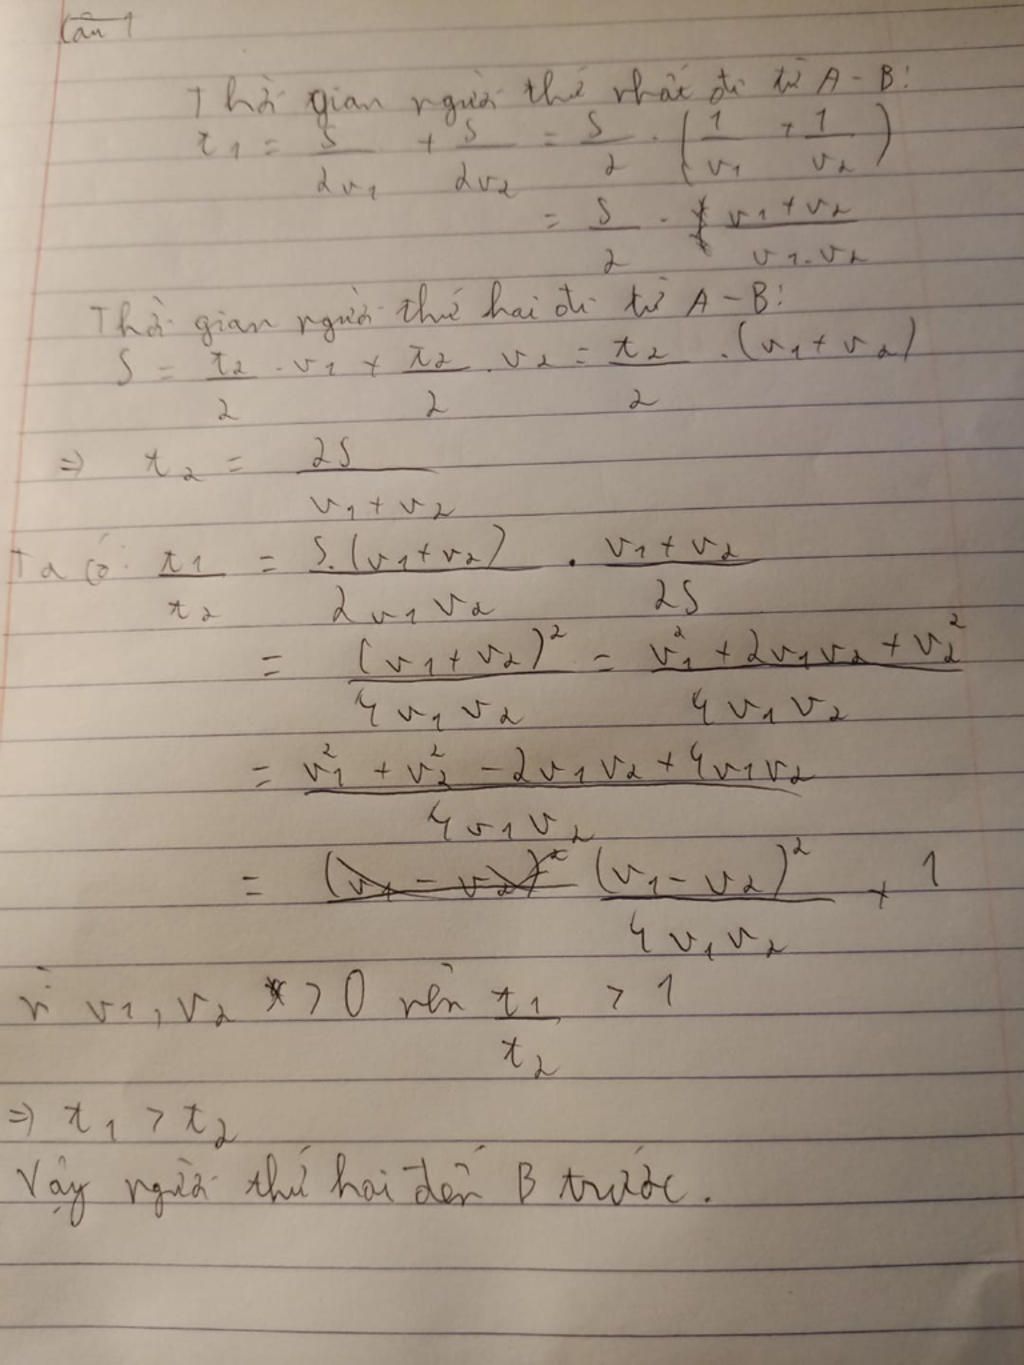 Câu 1
Thời gian người thứ nhất đi từ A - B:
t₁ = S/(2v₁) + S/(2v₂) = S/2 . (1/v₁ + 1/v₂)
= S/2 . (v₁ + v₂)/(v₁.v₂)
Thời gian người thứ hai đi từ A - B:
S = t₂/2 . v₁ + t₂/2 . v₂ = t₂/2 . (v₁ + v₂)
=> t₂ = 2S/(v₁ + v₂)
Ta có: t₁/t₂ = S.(v₁+v₂)/(2v₁v₂) . (v₁+v₂)/(2S)
= (v₁+v₂)²/(4v₁v₂) = (v₁² + 2v₁v₂ + v₂²)/(4v₁v₂)
= (v₁² + v₂² - 2v₁v₂ + 4v₁v₂)/(4v₁v₂)
= (v₁ - v₂)²/(4v₁v₂) + 1
vì v₁, v₂ > 0 nên t₁/t₂ > 1
=> t₁ > t₂
Vậy người thứ hai đến B trước.